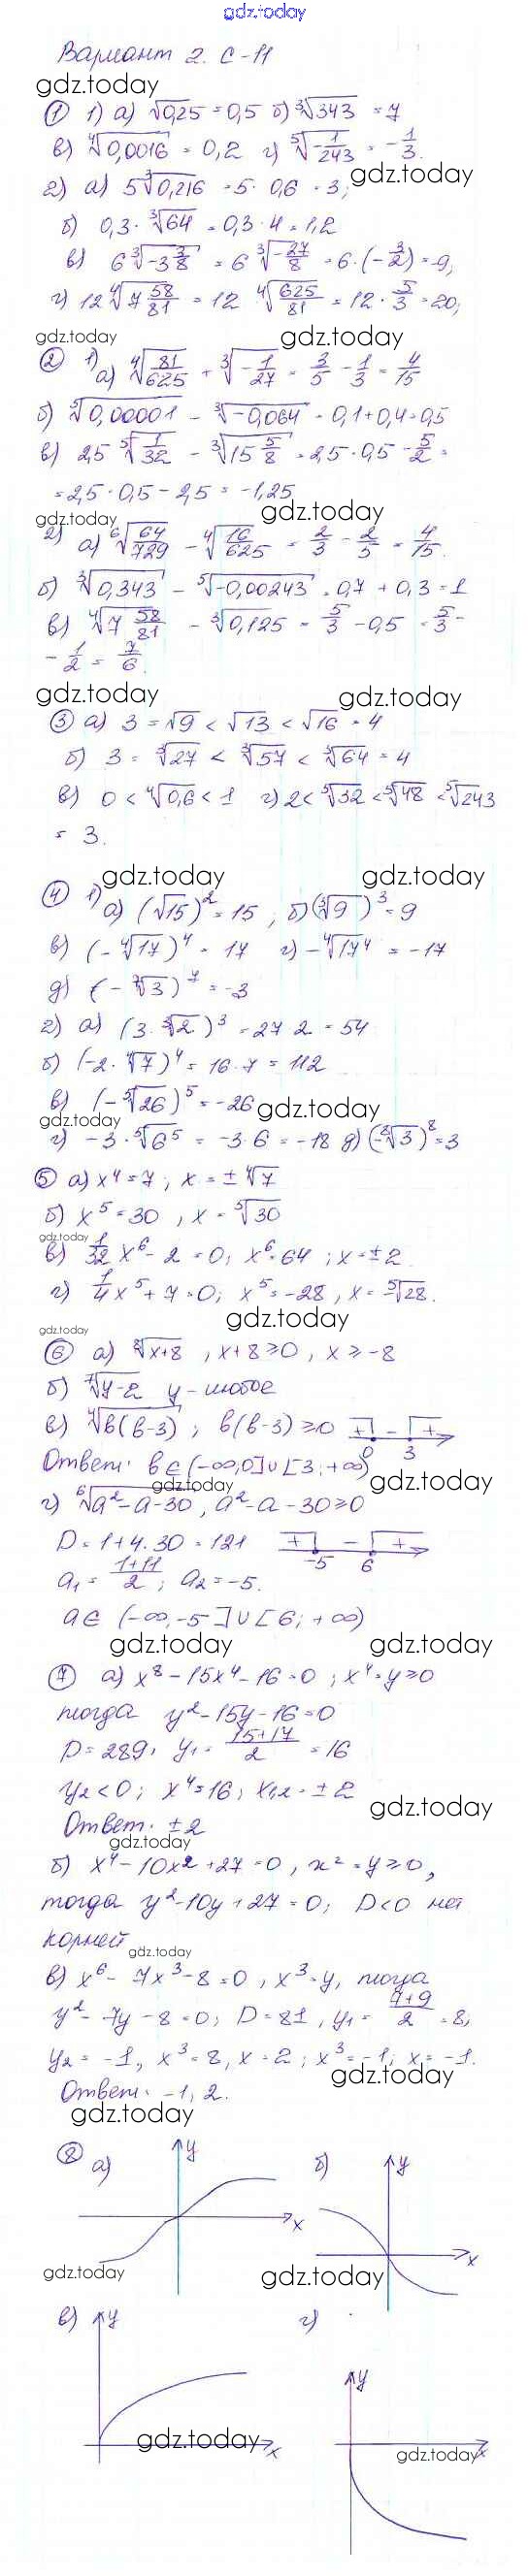 gdz.today
Вариант 2. С-11
gdz.today
① 1) а) √0,25 = 0,5 б) ∛343 = 7
в) ∜0,0016 = 0,2 г) ⁵√-1/243 = -1/3.
gdz.today
2) а) 5∛0,216 = 5·0,6 = 3;
б) 0,3·∛64 = 0,3·4 = 1,2
в) 6∛-3 3/8 = 6∛-27/8 = 6·(-3/2) = -9;
г) 12∜7 58/81 = 12 ∜625/81 = 12·5/3 = 20;
gdz.today gdz.today
② 1) а) ∜81/625 + ∛-1/27 = 3/5 - 1/3 = 4/15
б) ⁵√0,00001 - ∛-0,064 = 0,1+0,4 = 0,5
в) 2,5 ⁵√1/32 - ∛15 5/8 = 2,5·0,5 - 5/2 =
= 2,5·0,5 - 2,5 = -1,25
gdz.today gdz.today
2) а) ⁶√64/729 - ∜16/625 = 2/3 - 2/5 = 4/15.
б) ∛0,343 - ⁵√-0,00243 = 0,7 + 0,3 = 1
в) ∜7 58/81 - ∛0,125 = 5/3 - 0,5 = 5/3 -
- 1/2 = 7/6.
gdz.today gdz.today
③ а) 3 = √9 < √13 < √16 = 4
б) 3 = ∛27 < ∛57 < ∛64 = 4
в) 0 < ∜0,6 < 1 г) 2 < ⁵√32 < ⁵√48 < ⁵√243
= 3.
gdz.today gdz.today
④ 1) а) (√15)² = 15; б) (∛9)³ = 9
в) (-∜17)⁴ = 17 г) -∜17⁴ = -17
д) (-⁷√3)⁷ = -3
2) а) (3·∛2)³ = 27·2 = 54
б) (-2·∜7)⁴ = 16·7 = 112
в) (-⁵√26)⁵ = -26
gdz.today gdz.today
г) -3·⁵√6⁵ = -3·6 = -18 д) (-⁸√3)⁸ = 3
⑤ а) x⁴ = 7; x = ±∜7
б) x⁵ = 30, x = ⁵√30
gdz.today
в) 1/32 x⁶ - 2 = 0; x⁶ = 64; x = ±2
г) 1/4 x⁵ + 7 = 0; x⁵ = -28, x = -⁵√28.
gdz.today
gdz.today
⑥ а) ⁸√x+8, x+8≥0, x≥-8
б) ⁷√y-2 y - любое
в) ∜b(b-3); b(b-3)≥0 + - + 0 3
Ответ: b∈(-∞,0]∪[3;+∞)
gdz.today gdz.today
г) ⁶√a²-a-30, a²-a-30≥0
D = 1+4·30 = 121 + - + -5 6
a₁ = 1+11/2; a₂ = -5.
a∈ (-∞,-5]∪[6;+∞)
gdz.today gdz.today
⑦ а) x⁸-15x⁴-16=0; x⁴=y≥0
тогда y²-15y-16=0
D = 289, y₁ = 15+17/2 = 16
y₂<0; x⁴=16; x₁,₂ = ±2
gdz.today
Ответ: ±2
gdz.today
б) x⁴-10x²+27=0, x²=y≥0,
тогда y²-10y+27=0; D<0 нет
корней
gdz.today
в) x⁶-7x³-8=0, x³=y, тогда
y²-7y-8=0; D=81, y₁ = 7+9/2 = 8;
y₂ = -1, x³=8, x=2; x³=-1; x=-1.
gdz.today
Ответ: -1, 2.
gdz.today
⑧ а) y x б) y x
gdz.today gdz.today
в) y x г) y x
gdz.today gdz.today